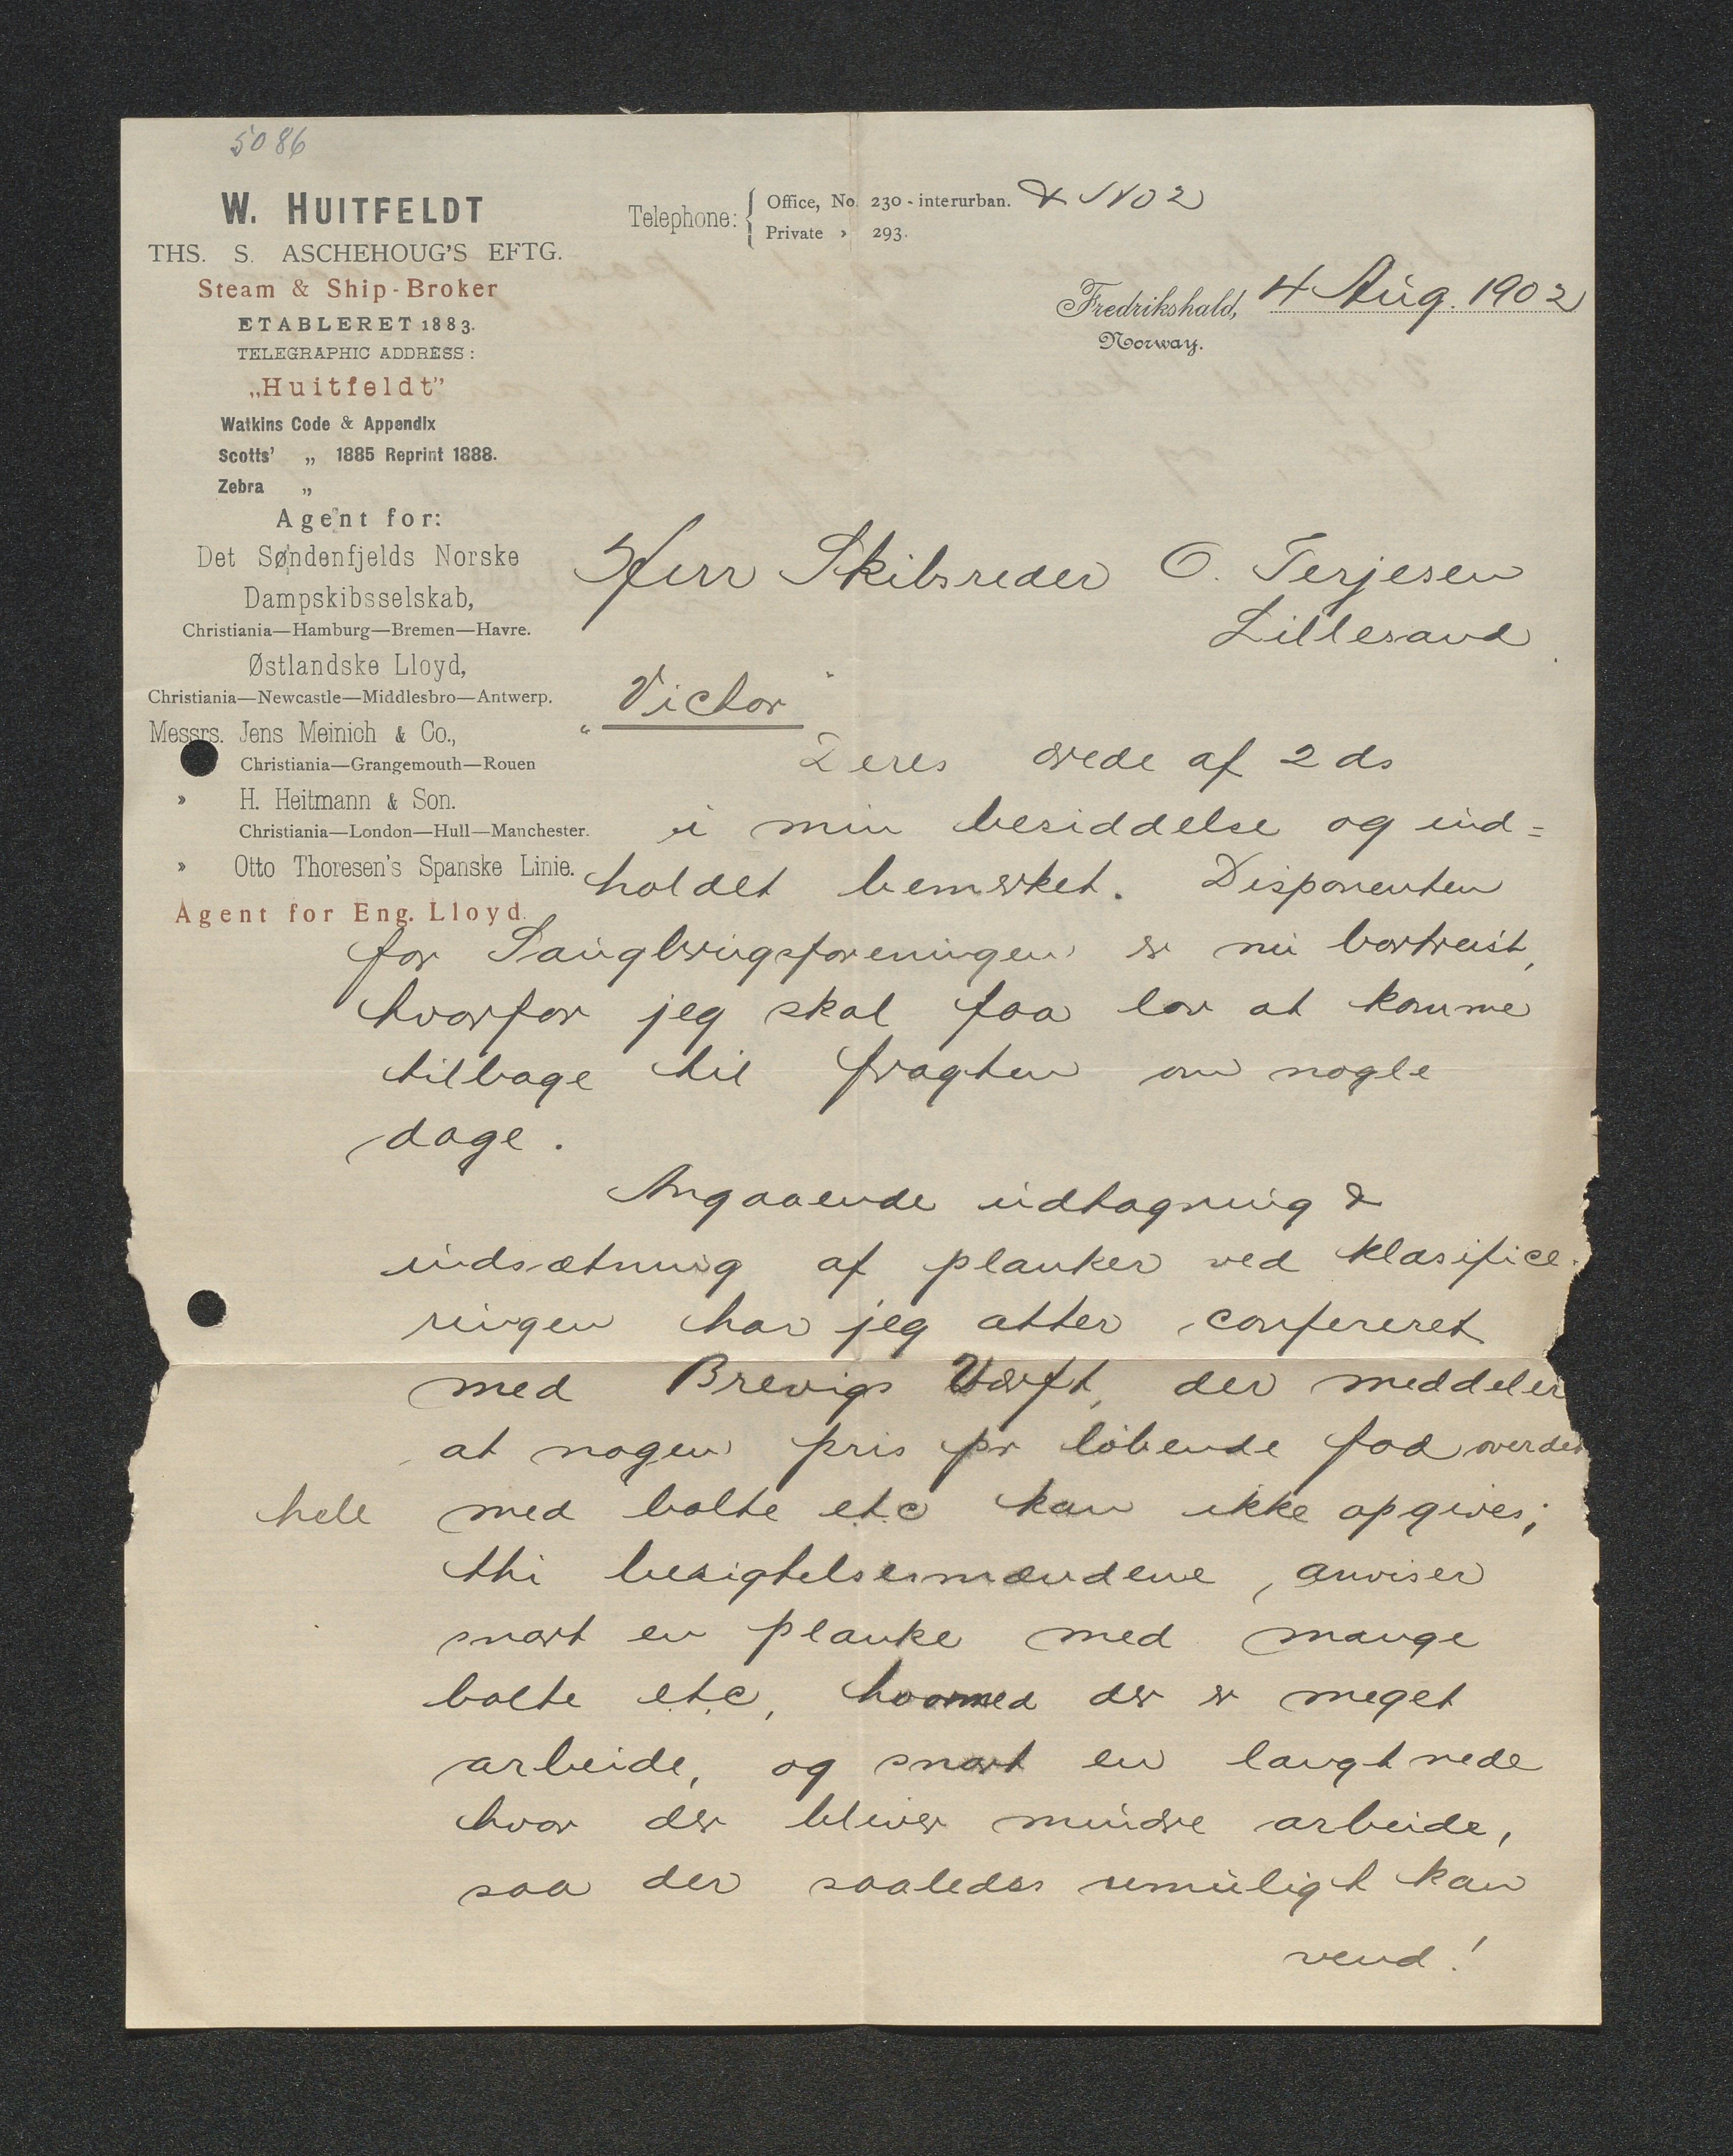 5086
W. HUITFELDT
THS. S. ASCHEHOUG'S EFTG.
Steam & Ship-Broker
ETABLERET 1883.
TELEGRAPHIC ADDRESS:
„Huitfeldt”
Watkins Code & Appendix
Scotts' „ 1885 Reprint 1888.
Zebra „
Agent for:
Det Søndenfjelds Norske
Dampskibsselskab,
Christiania—Hamburg—Bremen—Havre.
Østlandske Lloyd,
Christiania—Newcastle—Middlesbro—Antwerp.
Messrs. Jens Meinich & Co.,
Christiania—Grangemouth—Rouen
» H. Heitmann & Son.
Christiania—London—Hull—Manchester.
» Otto Thoresen's Spanske Linie.
Agent for Eng. Lloyd.
Telephone: { Office, No. 230 - interurban. & No 2
Private » 293.
Fredrikshald, 4 Aug. 1902
Norway.
Herr Skibsreder O. Terjesen
Lillesand
„Victor”
Deres ærede af 2 ds
i min besiddelse og ind=
holdet bemærket. Disponenten
for Saugbrugsforeningen er nu bortreist,
hvorfor jeg skal faa lov at komme
tilbage til fragten om nogle
dage.
Angaaende udtagning &
indsætning af planker ved klasifice-
ringen har jeg atter confereret
med Brevigs Værft, der meddeler
at nogen pris pr löbende fod overdet
hele med bolte etc kan ikke opgives;
thi besigtelsesmændene, anviser
snart en planke med mange
bolte etc, hvormed der er meget
arbeide, og snart en langt nede
hvor der bliver mindre arbeide,
saa der saaledes umuligt kan
vend!